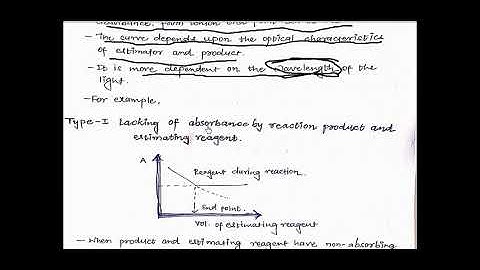 - The curve depends upon the optical characteristics
of estimator and product.
- It is more dependent on the wavelength of the
light.
- For example,
Type-I Lacking of absorbance by reaction product and
estimating reagent.
A
Reagent during reaction
End point
Vol. of estimating reagent
- When product and estimating reagent have non-absorbing